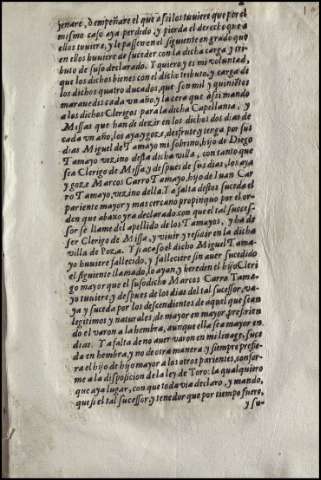 yenare, o empeñare el que assi los tuuiere que por el
mismo caso aya perdido, y pierda el derecho que a
ellos tuuiere, y se passe en el siguiente en grado que
en ellos huuiere de suceder con la dicha carga y tri-
buto de suso declarado. Y quiero y es mi voluntad,
que los dichos bienes con el dicho tributo, y carga de
los dichos quatro ducados, que son mil y quiniẽtos
marauedis cada vn año, y la cera que assi mando
a los dichos Clerigos para la dicha Capellania, y
Missas que han de dezir en los dichos dos dias de
cada vn año, los aya y goze, desfrute y tenga por sus
dias Miguel de Tamayo mi sobrino, hijo de Diego
Tamayo vezino desta dicha villa, con tanto que
sea Clerigo de Missa, y despues de sus dias, los aya
y goze Marcos Carro Tamayo, hijo de Iuan Car
ro Tamayo, vezino della. Y a falta destos suceda el
pariente mayor y mas cercano propinquo por el or-
den que abaxo yra declarado, con que el tal succes-
sor se llame del apellido de los Tamayos, y ha de
ser Clerigo de Missa, y viuir y residir en la dicha
villa de Poza. Y si acaso el dicho Miguel Tama-
yo huuiere fallecido, y falleciere sin auer sucedido
el siguiente llamado, lo ayan, y hereden el hijo Cleri
go mayor que el susodicho Marcos Carro Tama-
yo tuuiere, y despues de los dias del tal sucessor, va-
ya y suceda por los descendientes de aquel que sean
legitimos y naturales, de mayor en mayor, prefirien
do el varon a la hembra, aunque ella sea mayor en
dias. Y a falta de no auer varon en mi linage, suce
da en hembra, y no de otra manera, y siempre prefie-
ra el hijo de hijo mayor a los otros parientes, confor-
me a la disposicion de la ley de Toro: la qual quiero
que aya lugar, con que todavia declaro, y mando,
que si el tal sucessor, y tenedor que por tiempo fuere,
y su-